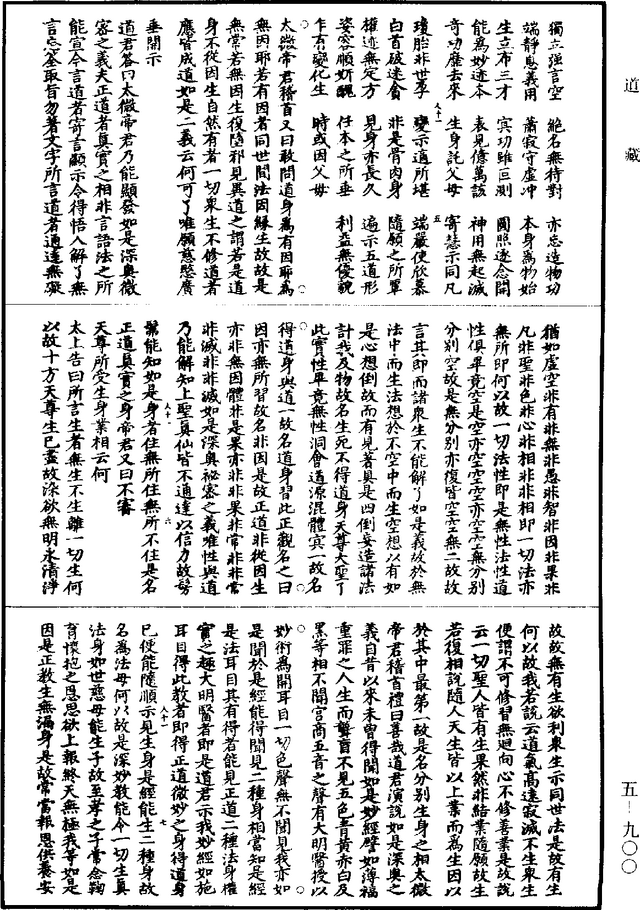 道藏
五－九〇〇
獨立強言空　絕名無待對　亦忘造物功
端靜息義用　蕭寂守虛沖　本身為物始
生立布三才　賓功雖叵測　圓照逐念開
能為妙迹本　表見億萬該　神用無起滅
奇功歷去來　生身託父母　寄慧示同凡
瓊胎非世孕　變示適所堪　端嚴使欣慕
白首破迷貪　非是骨肉身　隨願之所單
權迹無定方　見身亦長久　遍示五道形
姿容順妍醜　任本之所垂　利益無優觀
乍有變化生　時或因父母
太微帝君稽首又曰敢問道身為有因耶為
無因耶若有因者同世間法因緣生故故是
無常若無因生復隨邪見異道之謂若是道
身不從因生自然有者一切衆生不修道者
應皆成道如是二義云何可了唯願慈愍廣
垂開示
道君答曰太微帝君乃能顯發如是深奧微
密之義夫正道者真實之相非言語法之所
能宣令言道者寄言顯示令得悟入解了無
言忘筌取旨勿著文字所言道者通達無礙
猶如虛空非有非無非愚非智非因非果非
凡非聖非色非心非相非非相即一切法亦
無所即何以故一切法性即是無性法性道
性俱畢竟空是空亦空空空亦空空無分別
分別空故是無分別亦復皆空空無二故故
言其即而諸衆生不能解了如是義故於無
法中而生法想於不空中而生空想以有如
是心想倒故而有見著與是四倒妄造諸法
計我及物故名生死不得道身天尊大聖了
此實性畢竟無性洞會道源混體冥一故名
得道身與道一故名道身習此正觀名之曰
因亦無所習故名非因是故正道非從因生
亦非無因體非是果亦非非果非常非非常
非滅非非滅如是深奧祕密之義唯性與道
乃能解知上聖真仙皆不通達以信力故髣
髴能知如是身者住無所住無所不住是名
正道真實之身帝君又曰不審
天尊所受生身業相云何
太上告曰所言生者無生不生離一切生何
以故十方天尊生已盡故染欲無明永清淨
故故無有生欲利衆生示同世法是故有生
何以故我若說云道氣高遠寂滅不生衆生
便謂不可修習無迴向心不修善業是故說
云一切聖人皆有生果然非結業隨願故生
若復相說隨人天生皆以上業而為生因以
於其中最第一故是名分別生身之相太微
帝君稽首禮曰善哉道君演說如是深奧之
義自昔以來未曾得聞如是妙經譬如薄福
重罪之人生而聾盲不見五色青黃赤白及
黑等相不聞宮商五音之聲有大明醫授以
妙術為開耳目一切色聲無不聞見我亦如
是聞於是經能得聞見二種身相當知是經
是法耳目其有得者能見正道二種法身權
實之趣大明醫者即是道君示我妙經如施
耳目得此教者即得正道微妙之身得道身
已便能隨順示見生身是經能生二種身故
名為法母何以故是深妙教能令一切生真
法身如世慈母能生子故至孝之子常念鞠
育懷抱之恩思欲上報終天無極我等如是
因是正教生無漏身是故常當報恩供養安